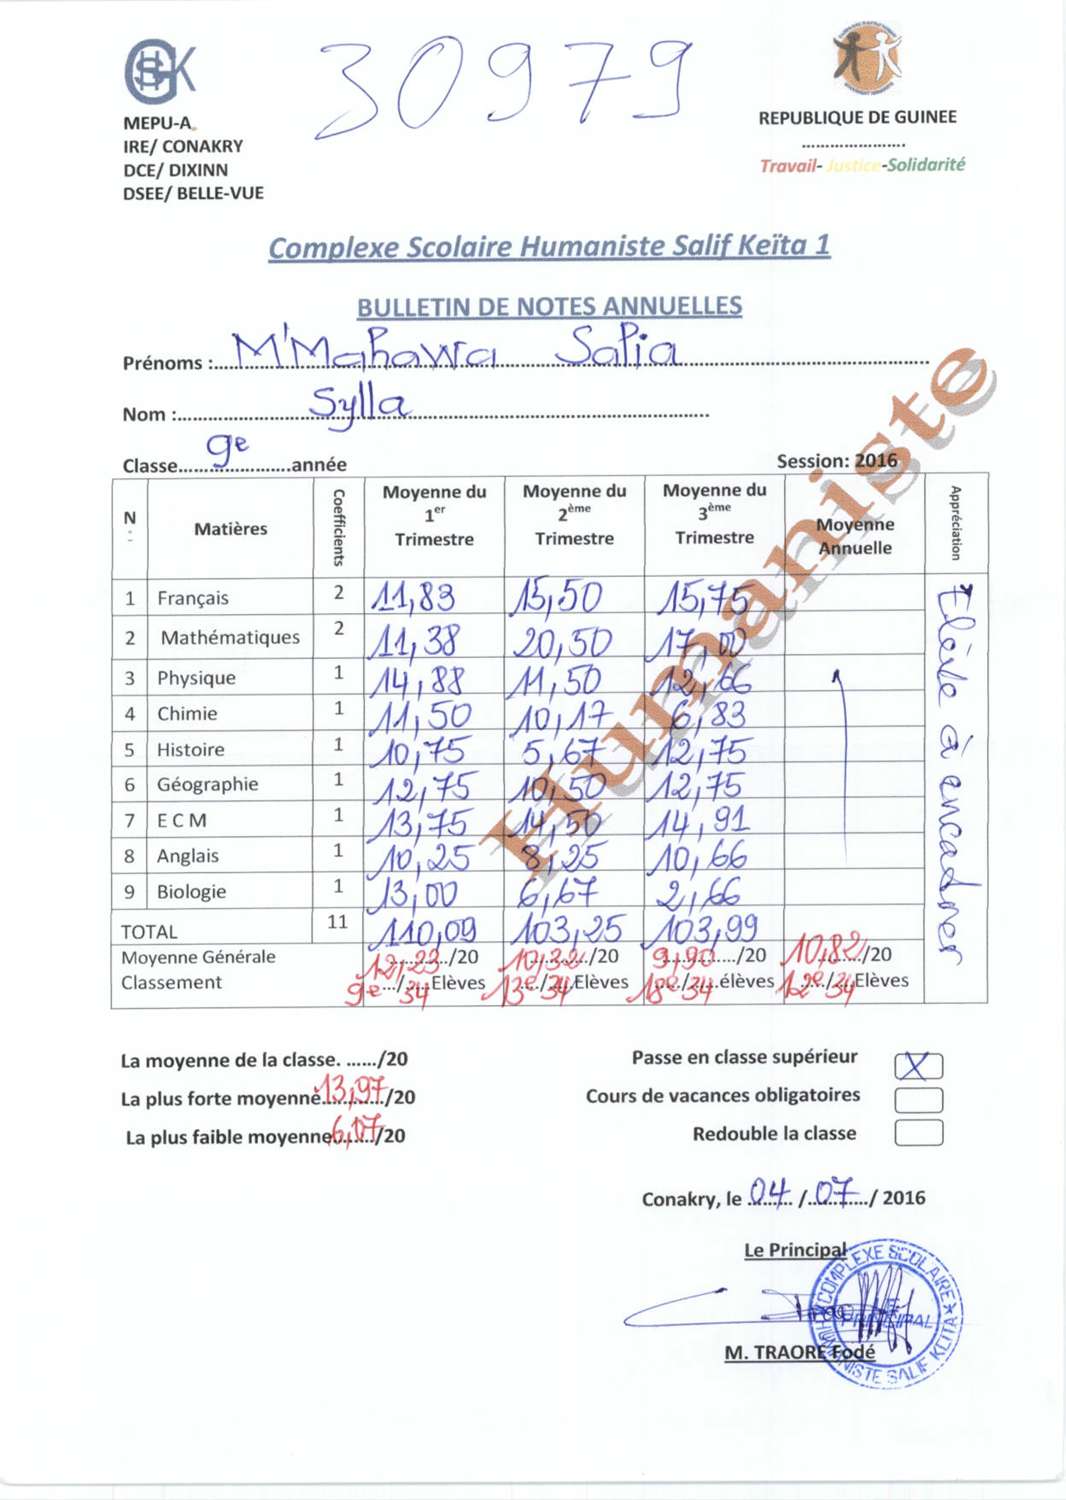 30979
GHSK
MEPU-A.
IRE/ CONAKRY
DCE/ DIXINN
DSEE/ BELLE-VUE
REPUBLIQUE DE GUINEE
.....................
Travail- Justice-Solidarité
Complexe Scolaire Humaniste Salif Keïta 1
BULLETIN DE NOTES ANNUELLES
Prénoms : M'Mahawa Safia
Nom : Sylla
Classe 9e année
Session: 2016
N Matières Coefficients Moyenne du 1er Trimestre Moyenne du 2ème Trimestre Moyenne du 3ème Trimestre Moyenne Annuelle Appréciation
1 Français 2 11,83 15,50 15,75
2 Mathématiques 2 11,38 20,50 17,00
3 Physique 1 14,88 11,50 12,66
4 Chimie 1 11,50 10,17 6,83
5 Histoire 1 10,75 5,67 12,75
6 Géographie 1 12,75 10,50 12,75
7 E C M 1 13,75 14,50 14,91
8 Anglais 1 10,25 8,25 10,66
9 Biologie 1 13,00 6,67 2,66
TOTAL 11 110,09 103,25 103,99
Moyenne Générale 12,23/20 10,32/20 9,90/20 10,82/20
Classement 9e/34 Elèves 13e/34 Elèves 18e/34 élèves 12e/34 Elèves
Elève à encadrer
Humaniste
La moyenne de la classe. ....../20
La plus forte moyenne 13,97/20
La plus faible moyenne 6,17/20
Passe en classe supérieur X
Cours de vacances obligatoires
Redouble la classe
Conakry, le 04 / 07 / 2016
Le Principal
COMPLEXE SCOLAIRE HUMANISTE SALIF KEITA
PRINCIPAL
M. TRAORE Fodé